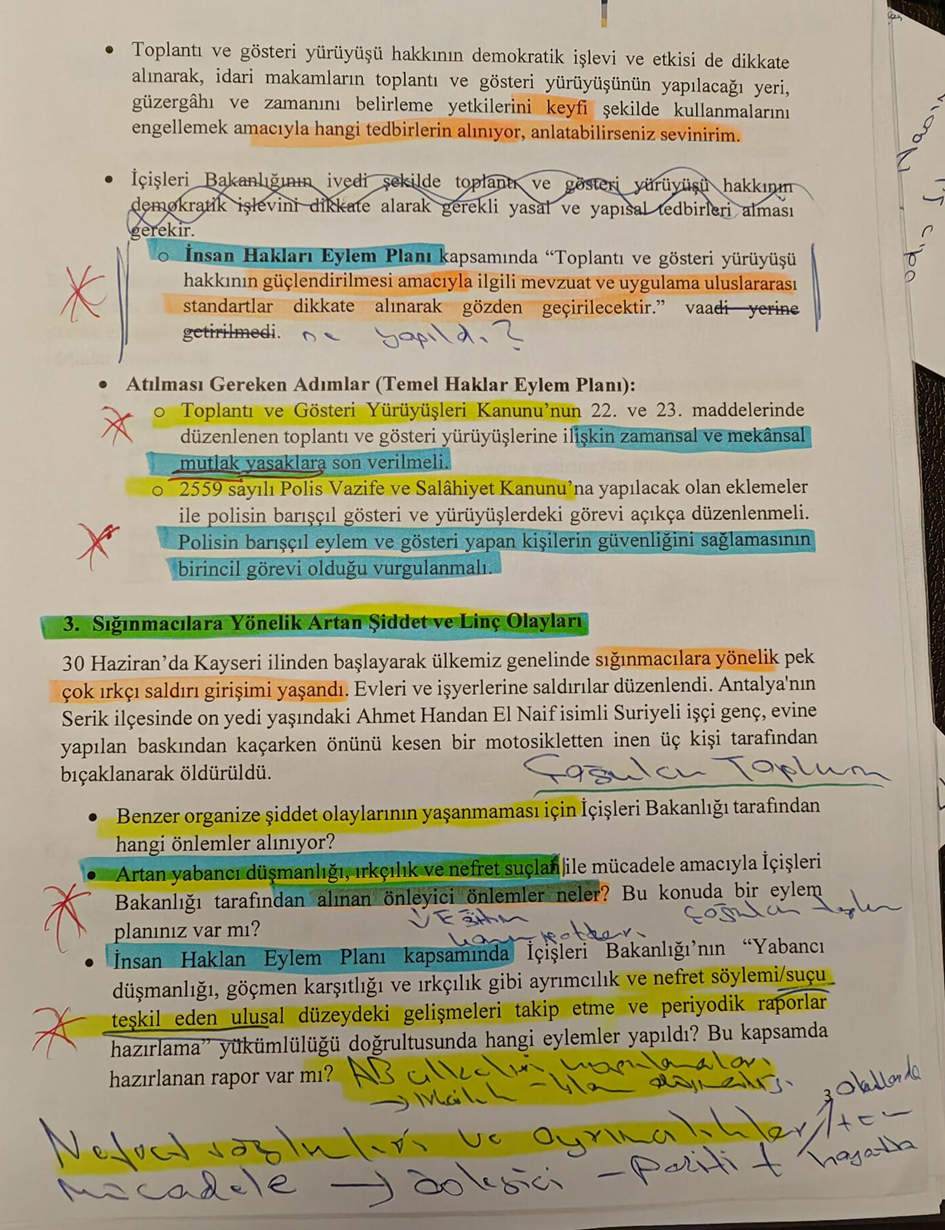 • Toplantı ve gösteri yürüyüşü hakkının demokratik işlevi ve etkisi de dikkate
alınarak, idari makamların toplantı ve gösteri yürüyüşünün yapılacağı yeri,
güzergâhı ve zamanını belirleme yetkilerini keyfi şekilde kullanmalarını
engellemek amacıyla hangi tedbirlerin alınıyor, anlatabilirseniz sevinirim.
• İçişleri Bakanlığının ivedi şekilde toplantı ve gösteri yürüyüşü hakkının
demokratik işlevini dikkate alarak gerekli yasal ve yapısal tedbirleri alması
gerekir.
o İnsan Hakları Eylem Planı kapsamında “Toplantı ve gösteri yürüyüşü
hakkının güçlendirilmesi amacıyla ilgili mevzuat ve uygulama uluslararası
standartlar dikkate alınarak gözden geçirilecektir.” vaadi yerine
getirilmedi. ne yapıldı?
• Atılması Gereken Adımlar (Temel Haklar Eylem Planı):
o Toplantı ve Gösteri Yürüyüşleri Kanunu’nun 22. ve 23. maddelerinde
düzenlenen toplantı ve gösteri yürüyüşlerine ilişkin zamansal ve mekânsal
mutlak yasaklara son verilmeli.
o 2559 sayılı Polis Vazife ve Salâhiyet Kanunu’na yapılacak olan eklemeler
ile polisin barışçıl gösteri ve yürüyüşlerdeki görevi açıkça düzenlenmeli.
Polisin barışçıl eylem ve gösteri yapan kişilerin güvenliğini sağlamasının
birincil görevi olduğu vurgulanmalı.
3. Sığınmacılara Yönelik Artan Şiddet ve Linç Olayları
30 Haziran’da Kayseri ilinden başlayarak ülkemiz genelinde sığınmacılara yönelik pek
çok ırkçı saldırı girişimi yaşandı. Evleri ve işyerlerine saldırılar düzenlendi. Antalya'nın
Serik ilçesinde on yedi yaşındaki Ahmet Handan El Naif isimli Suriyeli işçi genç, evine
yapılan baskından kaçarken önünü kesen bir motosikletten inen üç kişi tarafından
bıçaklanarak öldürüldü.
Çoğulcu Toplum
• Benzer organize şiddet olaylarının yaşanmaması için İçişleri Bakanlığı tarafından
hangi önlemler alınıyor?
• Artan yabancı düşmanlığı, ırkçılık ve nefret suçları ile mücadele amacıyla İçişleri
Bakanlığı tarafından alınan önleyici önlemler neler? Bu konuda bir eylem
planınız var mı? Eğitim çoğulcu
• İnsan Haklan Eylem Planı kapsamında İçişleri Bakanlığı’nın “Yabancı
düşmanlığı, göçmen karşıtlığı ve ırkçılık gibi ayrımcılık ve nefret söylemi/suçu
teşkil eden ulusal düzeydeki gelişmeleri takip etme ve periyodik raporlar
hazırlama” yükümlülüğü doğrultusunda hangi eylemler yapıldı? Bu kapsamda
hazırlanan rapor var mı? AB ülkeleri
→ Irkçılık -
Nefret ve ayrımcılıkla
mücadele → önleyici - Pozitif hayatta